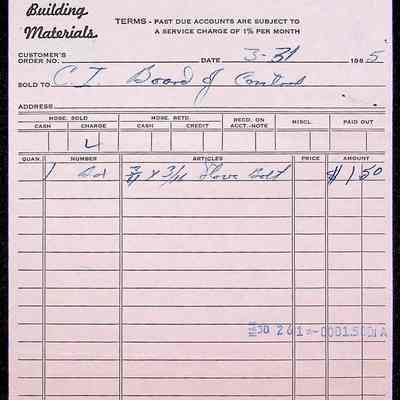 Building
Materials
TERMS - PAST DUE ACCOUNTS ARE SUBJECT TO
A SERVICE CHARGE OF 1% PER MONTH
CUSTOMER'S
ORDER NO. DATE 3-31 1965
SOLD TO C.I. Board of Control
ADDRESS
MDSE. SOLD MDSE. RETD. RECD. ON ACCT.-NOTE MISCL. PAID OUT
CASH CHARGE CASH CREDIT
QUAN. NUMBER ARTICLES PRICE AMOUNT
1 Bd 3/4 Stove Bolt $1.50